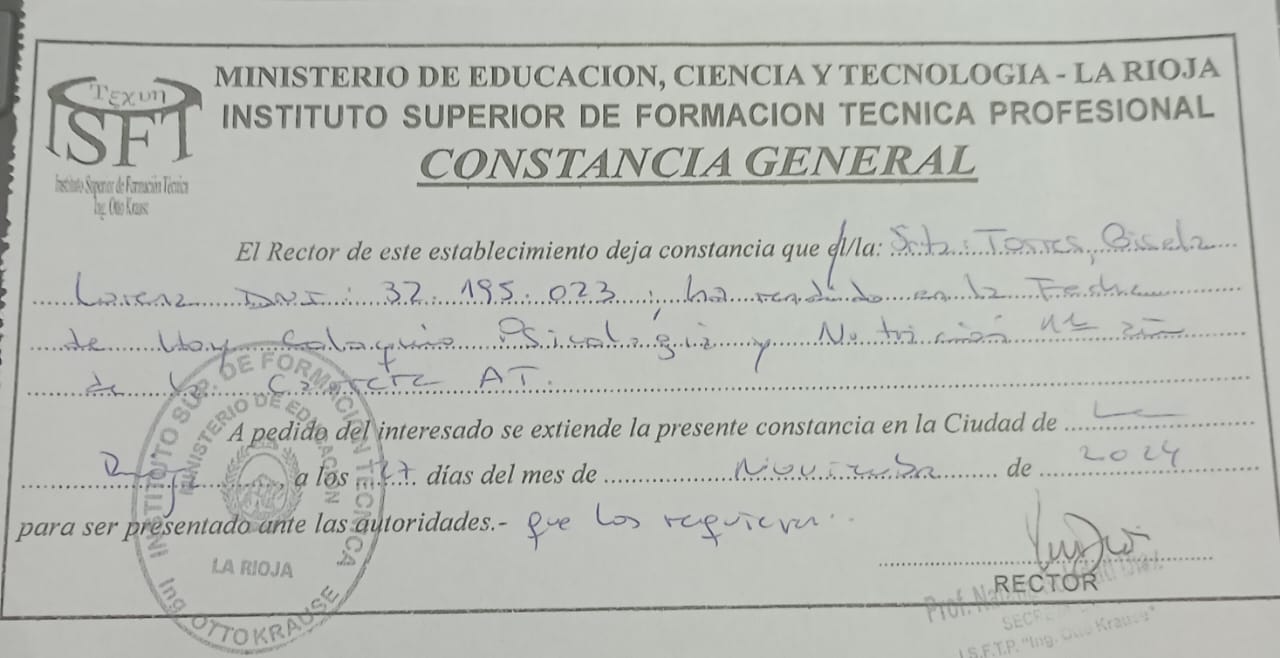 Τεχνη
ISFT
Instituto Superior de Formación Técnica
Ing. Otto Krause
MINISTERIO DE EDUCACION, CIENCIA Y TECNOLOGIA - LA RIOJA
INSTITUTO SUPERIOR DE FORMACION TECNICA PROFESIONAL
CONSTANCIA GENERAL
El Rector de este establecimiento deja constancia que el/la: Srta: Torres, Gisela
Lorena DNI: 32.195.023, ha rendido en la Fecha
de Hoy Coloquio Psicología y Nutrición 1º año
de la Carrera AT.
A pedido del interesado se extiende la presente constancia en la Ciudad de La
Rioja a los 27 días del mes de Noviembre de 2024
para ser presentado ante las autoridades.- que los requieran.
RECTOR
Prof.
SECRE
I.S.F.T.P. "Ing. Otto Krause"
INSTITUTO SUP. DE FORMACION TECNICA
MINISTERIO DE EDUCACION
LA RIOJA
Ing. OTTO KRAUSE